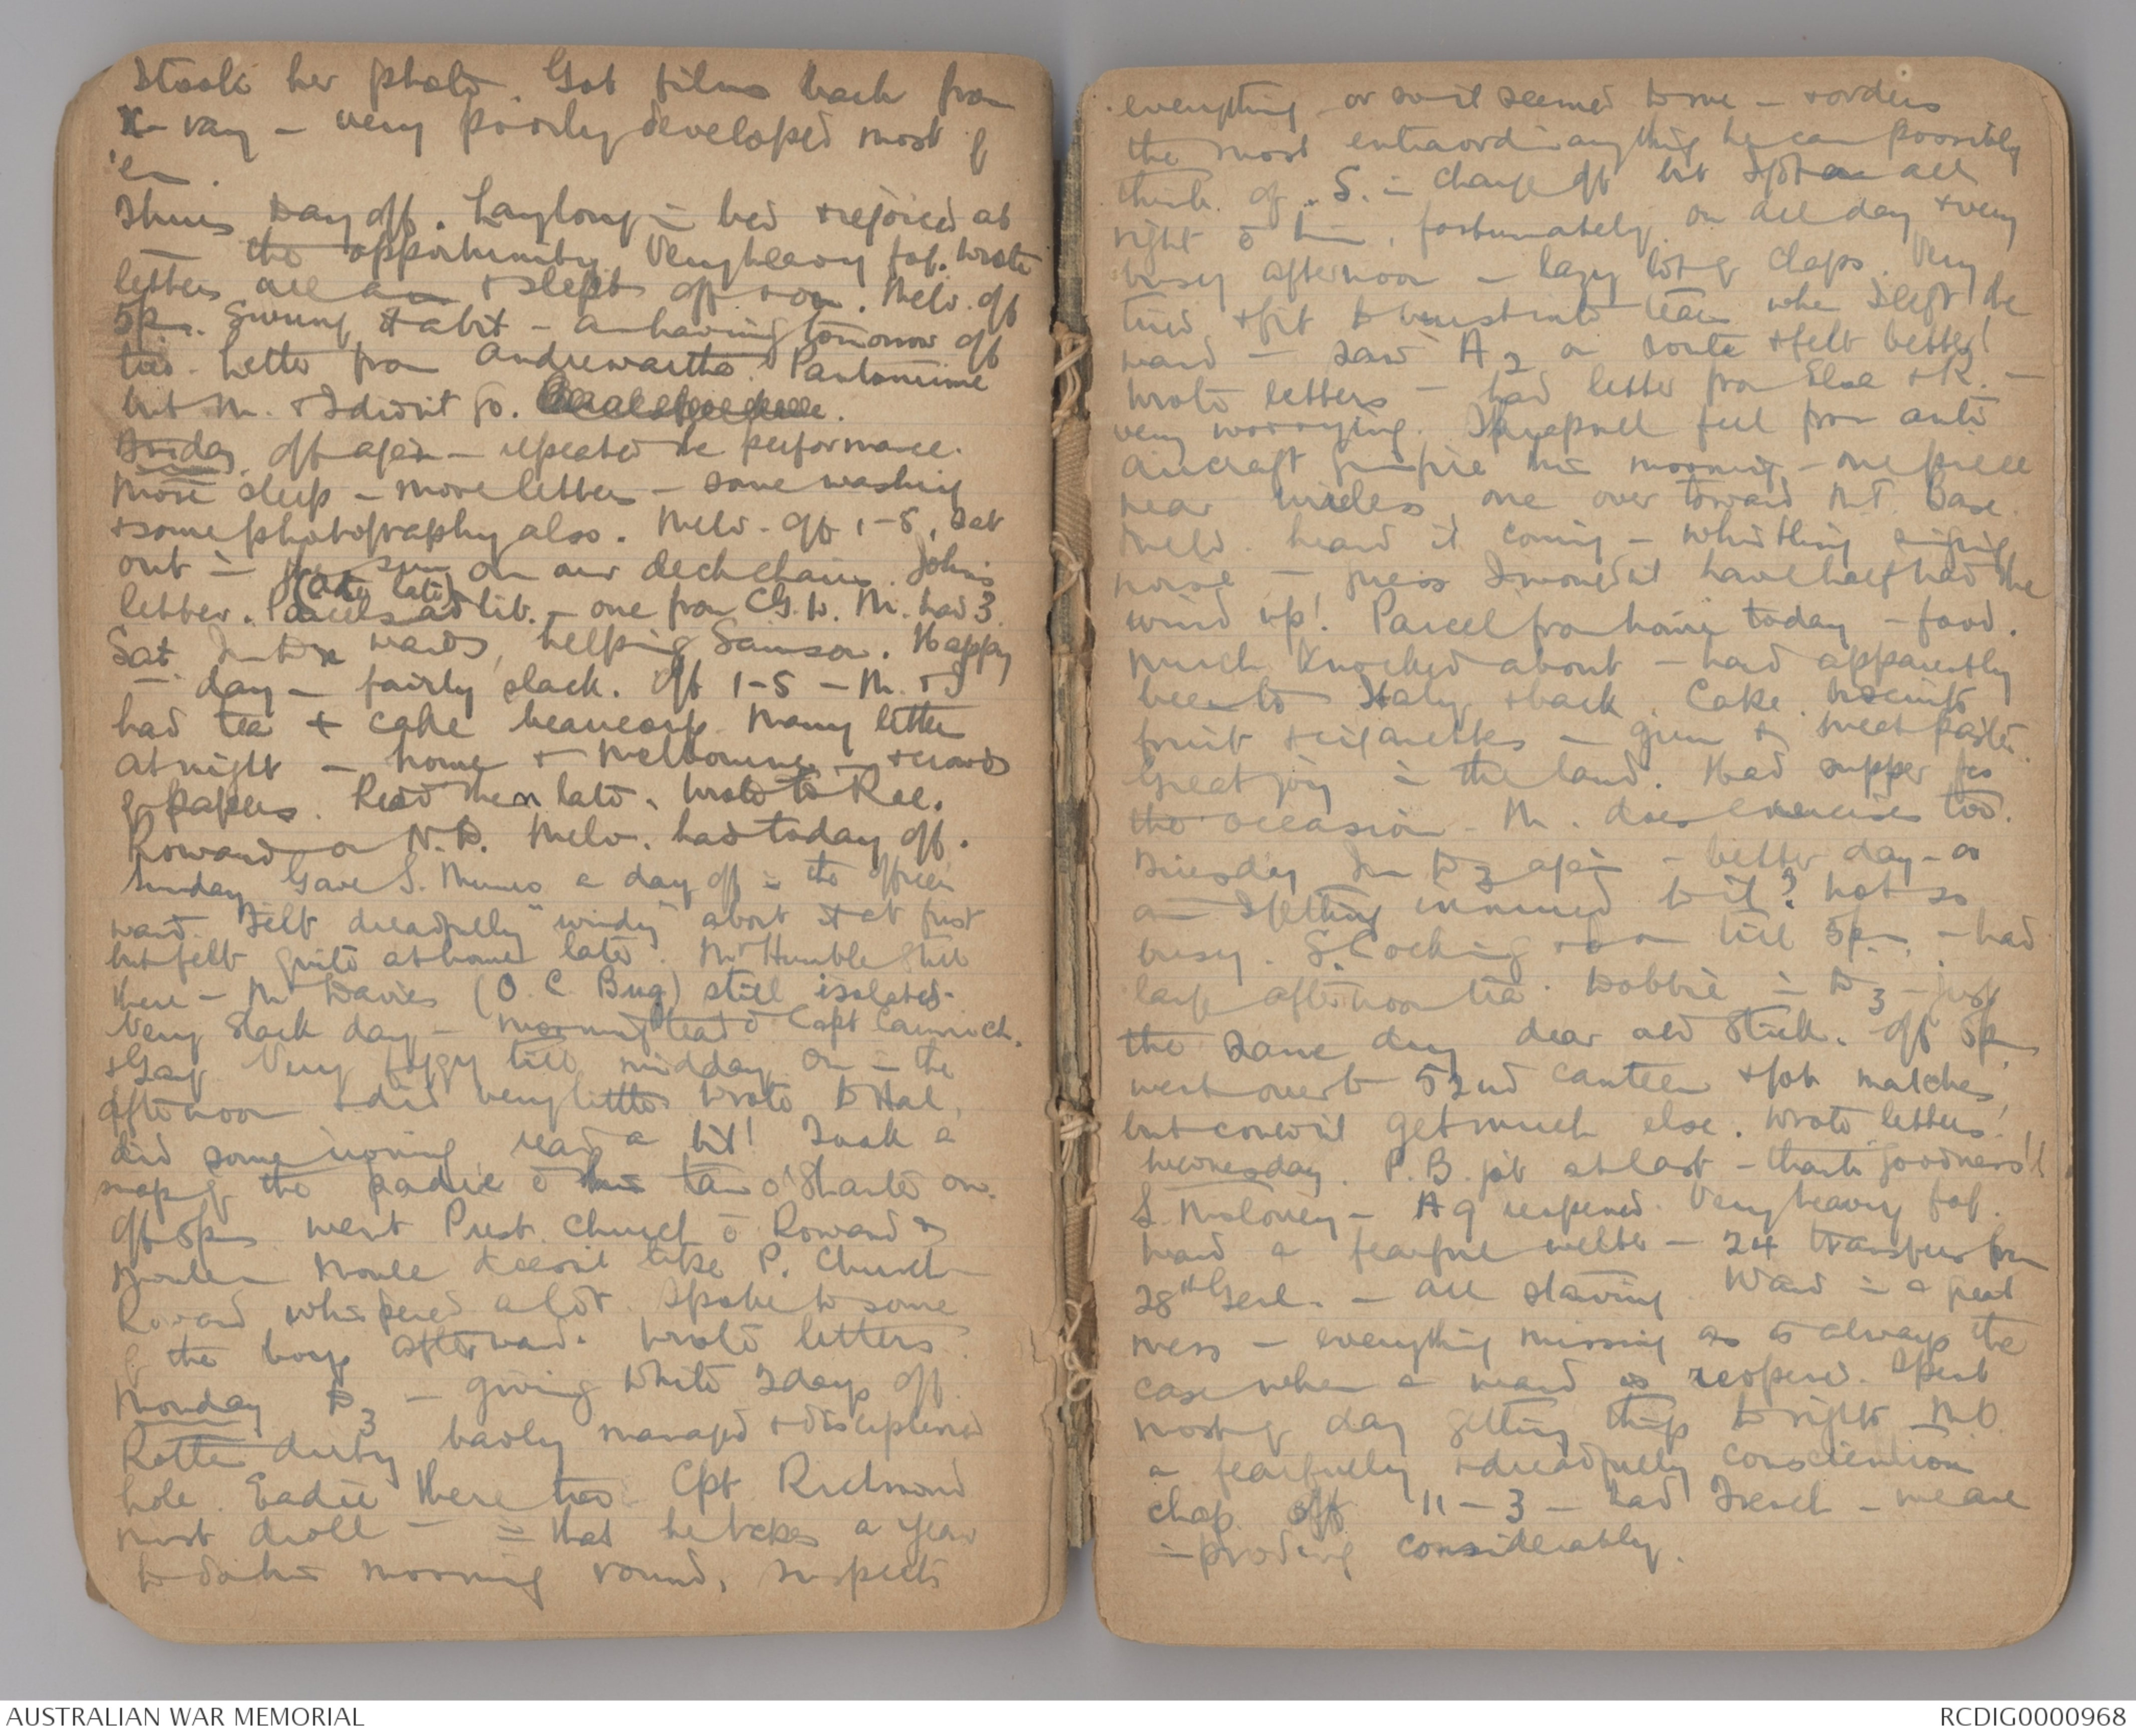 I took her photo. Got films back from
X-ray – very poorly developed most of
'em.
Thurs Day off. Lay long in bed & rejoiced at
the opportunity. Very heavy fog. Wrote
letters all am & slept off & on. Melv. off
5pm. Swung it a bit – am having tomorrow off
too. Letter from Andrewartha. Pantomime
but M. & I didn't go.
Friday off again – repeated the performance.
More sleep – more letters – some washing
& some photography also. Melv. off 1-5, sat
out in the sun on our deckchairs. John's
letter. Parcels ad lib. – one from C.G.W. M. had 3.
Sat. In wards, helping Samson. Happy
day – fairly slack. Off 1-5 – M. & I
had tea & cake beaucoup. Many letters
at night – home & Melbourne – & crowds
of papers. Read them late. Wrote to Rae.
Howard on N.D. Melv. had today off.
Sunday Gave S. a day off in the officers
ward. Felt dreadfully "windy" about it at first
but felt quite at home later. Mr Humble still
there – Mr Davies (O.C. Bug) still isolated.
Very slack day – morning tea c Capt
& Gay. Very foggy till midday. On in the
afternoon & did very little. Wrote to Hal,
did some ironing, read a bit! Took a
snap of the padre c his tam o'shanter on.
Off 5pm went Presb. Church c Howard &
Moule doesn't like P. Church
whispered a lot. Spoke to some
of the boys afterward. Wrote letters.
Monday D3 – giving White 2 days off.
Rotten dirty badly managed & disciplined
hole. Eadie there too. Cpt Richmond
most droll – in that he takes a year
to do his morning round, suspects
everything or so it seemed to me – & orders
the most extraordinary thing he can possibly
think of. S. in charge off but I got on all
right c him, fortunately. On all day & very
busy afternoon – lazy lot of chaps. Very
tired & fit to burst into tears when I left the
ward – saw A2 en route & felt better!
Wrote letters – had letter from Elsa & R. –
very worrying. Shrapnel fell from anti
aircraft gunfire this morning – one piece
near wireless, one over toward M.T. Base.
Melv. heard it coming – whistling singing
noise – guess I would have half had the
wind up! Parcel from home today – food.
Much knocked about – had apparently
been to Italy & back. Cake, biscuits
fruit & cigarettes – gum & meat paste.
Great joy in the land. Had supper for
the occasion. M. does exercises too.
Tuesday In D3 again – better day – or
am I getting innured to it? Not so
busy. S. Cocking & on till 5pm – had
large afternoon tea. Dobbie in D3 – just
the same dry dear old stick. Off 5pm
went over to 52nd canteen & got matches,
but couldn't get much else. Wrote letters.
Wednesday. P.B. job at last – thank goodness!!
S. Moloney – A9 reopened. Very heavy fog.
Ward a fearful welter – 24 transfers from
28th Genl. – all starving. Ward in a great
mess – everything missing as is always the
case when a ward is reopened. Spent
most of day getting things to rights. M.O.
a fearfully & dreadfully conscientious
chap. Off 11-3 – had French – we are
improving considerably.
AUSTRALIAN WAR MEMORIAL
RCDIG0000968